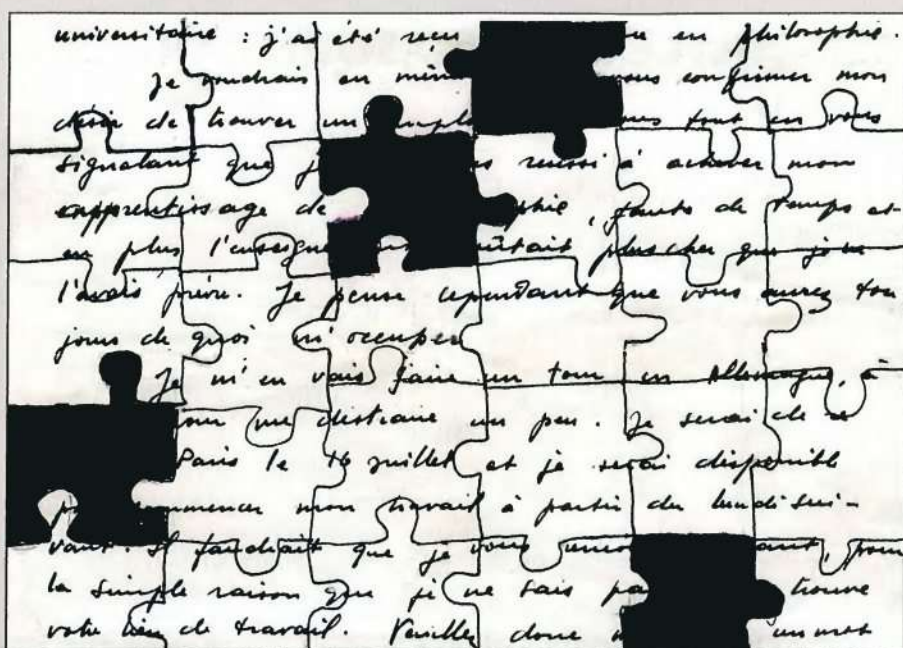 universitaire : j'ai été reçu en philosophie.
Je voudrais en même vous confirmer mon
désir de trouver un emplo vous tout en vous
signalant que j s réussi à achever mon
apprentissage de phie, faute de temps et
en plus l'enseigne coûtait plus cher que je ne
l'avais prévu. Je pense cependant que vous aurez tou
jours de quoi m'occuper
Je m'en vais faire un tour en Allemagne, à
pour me distraire un peu. Je serai de
Paris le 16 juillet et je serai disponible
commencer mon travail à partir du lundi sui-
vant. Il faudrait que je vous avant, pour
la simple raison que je ne sais pa trouve
votre lieu de travail. Veuillez donc un mot